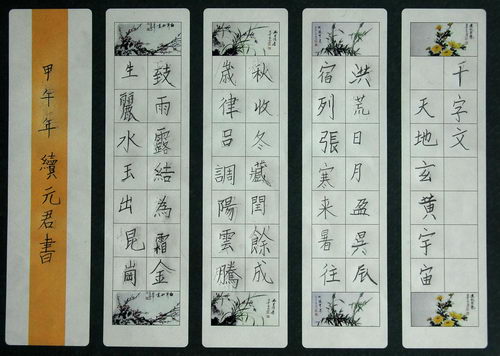 千字文
天地玄黄宇宙
洪荒日月盈昃辰
宿列張寒来暑往
秋收冬藏閏餘成
歲律吕調陽雲騰
致雨露結為霜金
生麗水玉出昆崗
甲午年 續元君書